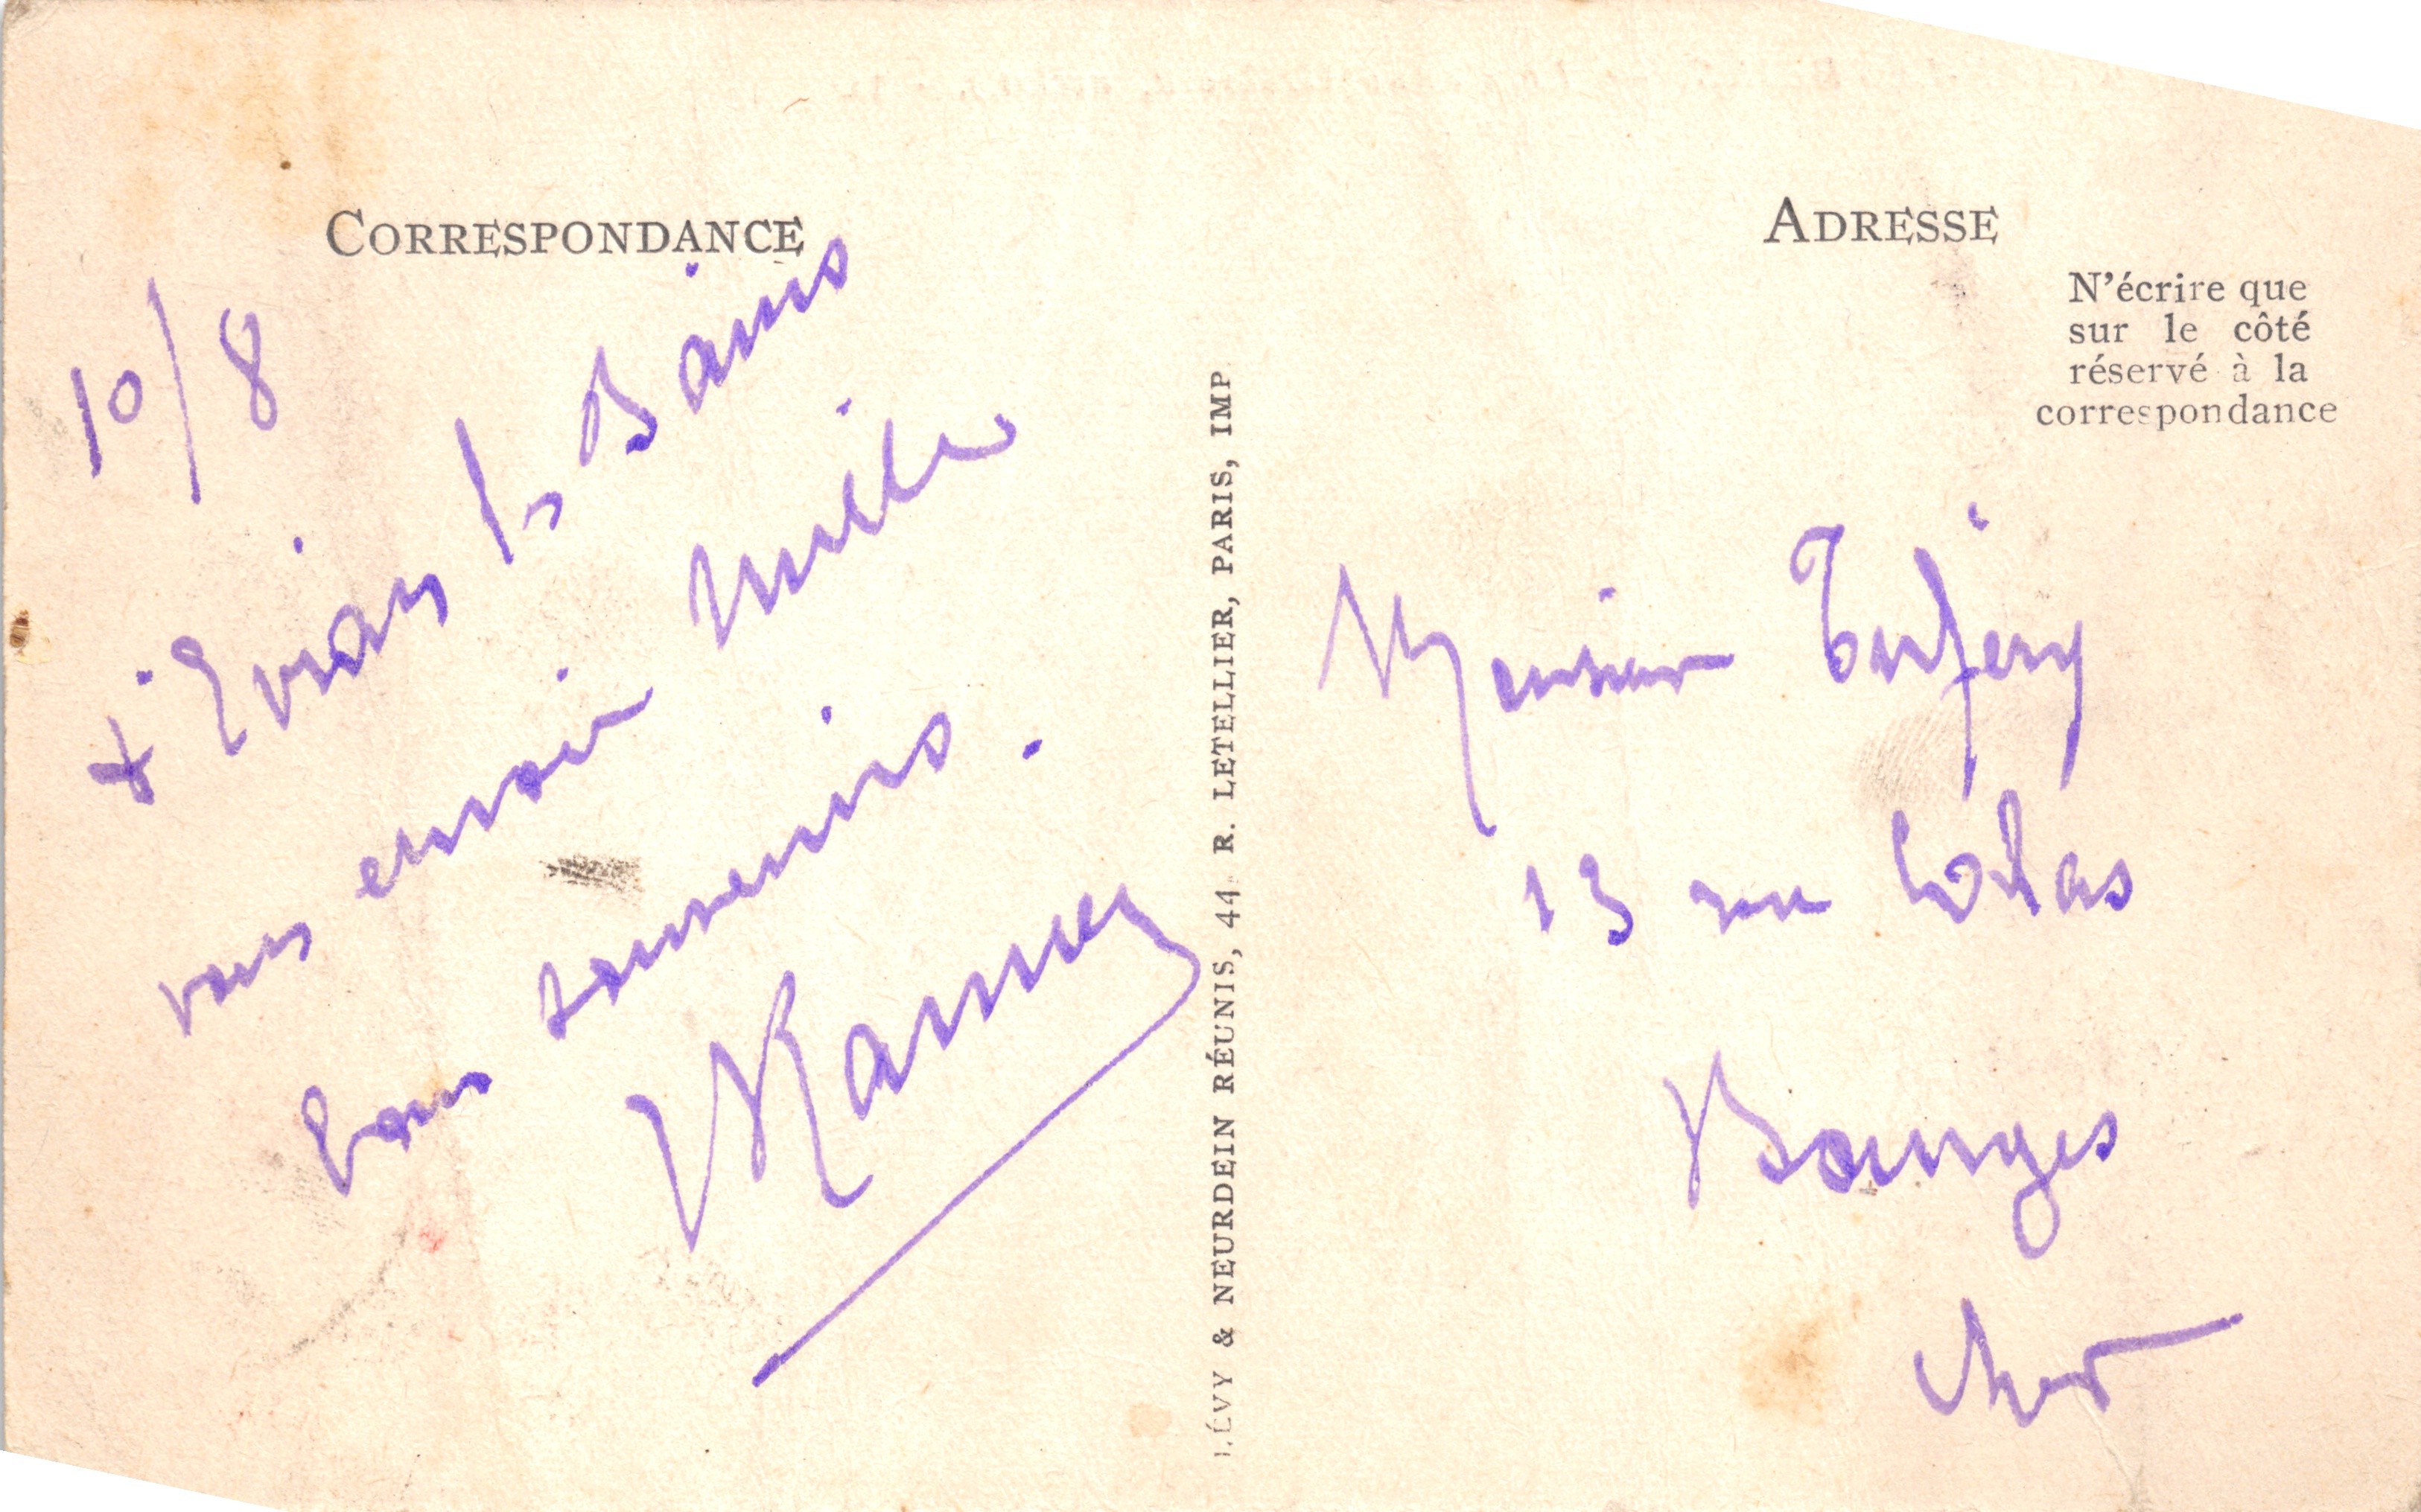 CORRESPONDANCE
10/8
d'Evian ls Bains
vous envoie mille
bons souvenirs.
LÉVY & NEURDEIN RÉUNIS, 44 R. LETELLIER, PARIS, IMP
ADRESSE
N'écrire que
sur le côté
réservé à la
correspondance
Monsieur
13 rue
Bourges
Cher